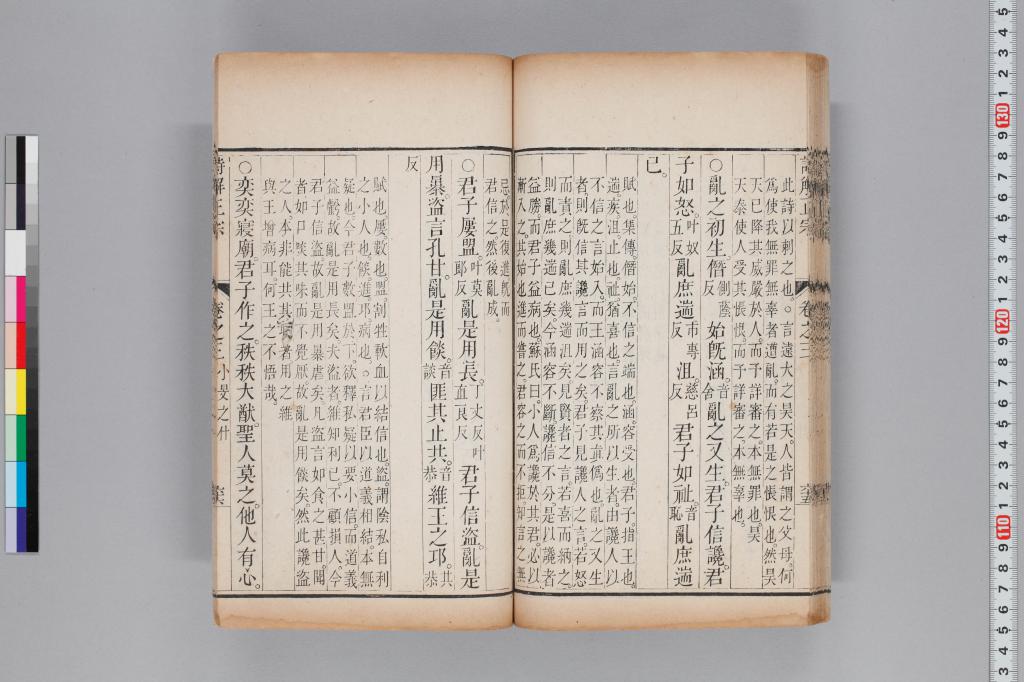 此詩以刺之也。○言遠大之昊天。人皆謂之父母。何
爲使我無罪無辜者遭亂。而有若是之悵恨也。然昊
天已降其威嚴於人。而予詳審之。本無罪也。昊
天泰使人受其悵恨。而予詳審之。本無辜也。
○亂之初生。僭側蔭反始旣涵。音含亂之又生。君子信讒。君
子如怒。叶奴五反亂庶遄市專反沮。慈呂反君子如祉。音恥亂庶遄
已。
賦也。集傳。僭始。不信之端也。涵。容受也。君子。指王也。
遄。疾。沮。止也。祉。猶喜也。言亂之所以生者。由讒人以
不信之言始入。而王涵容不察其眞僞也。亂之又生
者。則旣信其讒言而用之矣。君子見讒人之言。若怒
而責之。則亂庶幾遄沮矣。見賢者之言。若喜而納之
則亂庶幾遄已矣。今涵容不斷。讒信不分。是以讒者
益勝。而君子益病也。蘇氏曰。小人爲讒於其君。必以
漸入之。其始也。進而嘗之。君容之而不拒。知言之無
忌。於是復進。旣而
君信之。然後亂成。
○君子屢盟。叶莫郎反亂是用長。丁丈反叶直良反君子信盜。亂是
用暴。盜言孔甘。亂是用餤。音談匪其止共。音恭維王之邛。其恭
反
賦也。屢。數也。盟。割牲歃血以結信也。盜。謂陰私自利
之小人也。餤。進。邛。病也。○言君臣以道義相結。本無
疑也。今君子數盟於下。欲釋私疑。以要小信。而道義
益虧。故亂是用長矣。夫盜者。維知利已。不顧損人。今
君子信盜。故亂是用暴虐矣。凡盜言如食之甚甘。聞
者如口啖其味。而不覺厭。故亂是用餤矣。然此讒盜
之人。本非能共其職者。用之維
與王增病耳。何王之不悟哉。
○奕奕寢廟。君子作之。秩秩大猷。聖人莫之。他人有心。
詩解正宗 卷之三 小旻之什